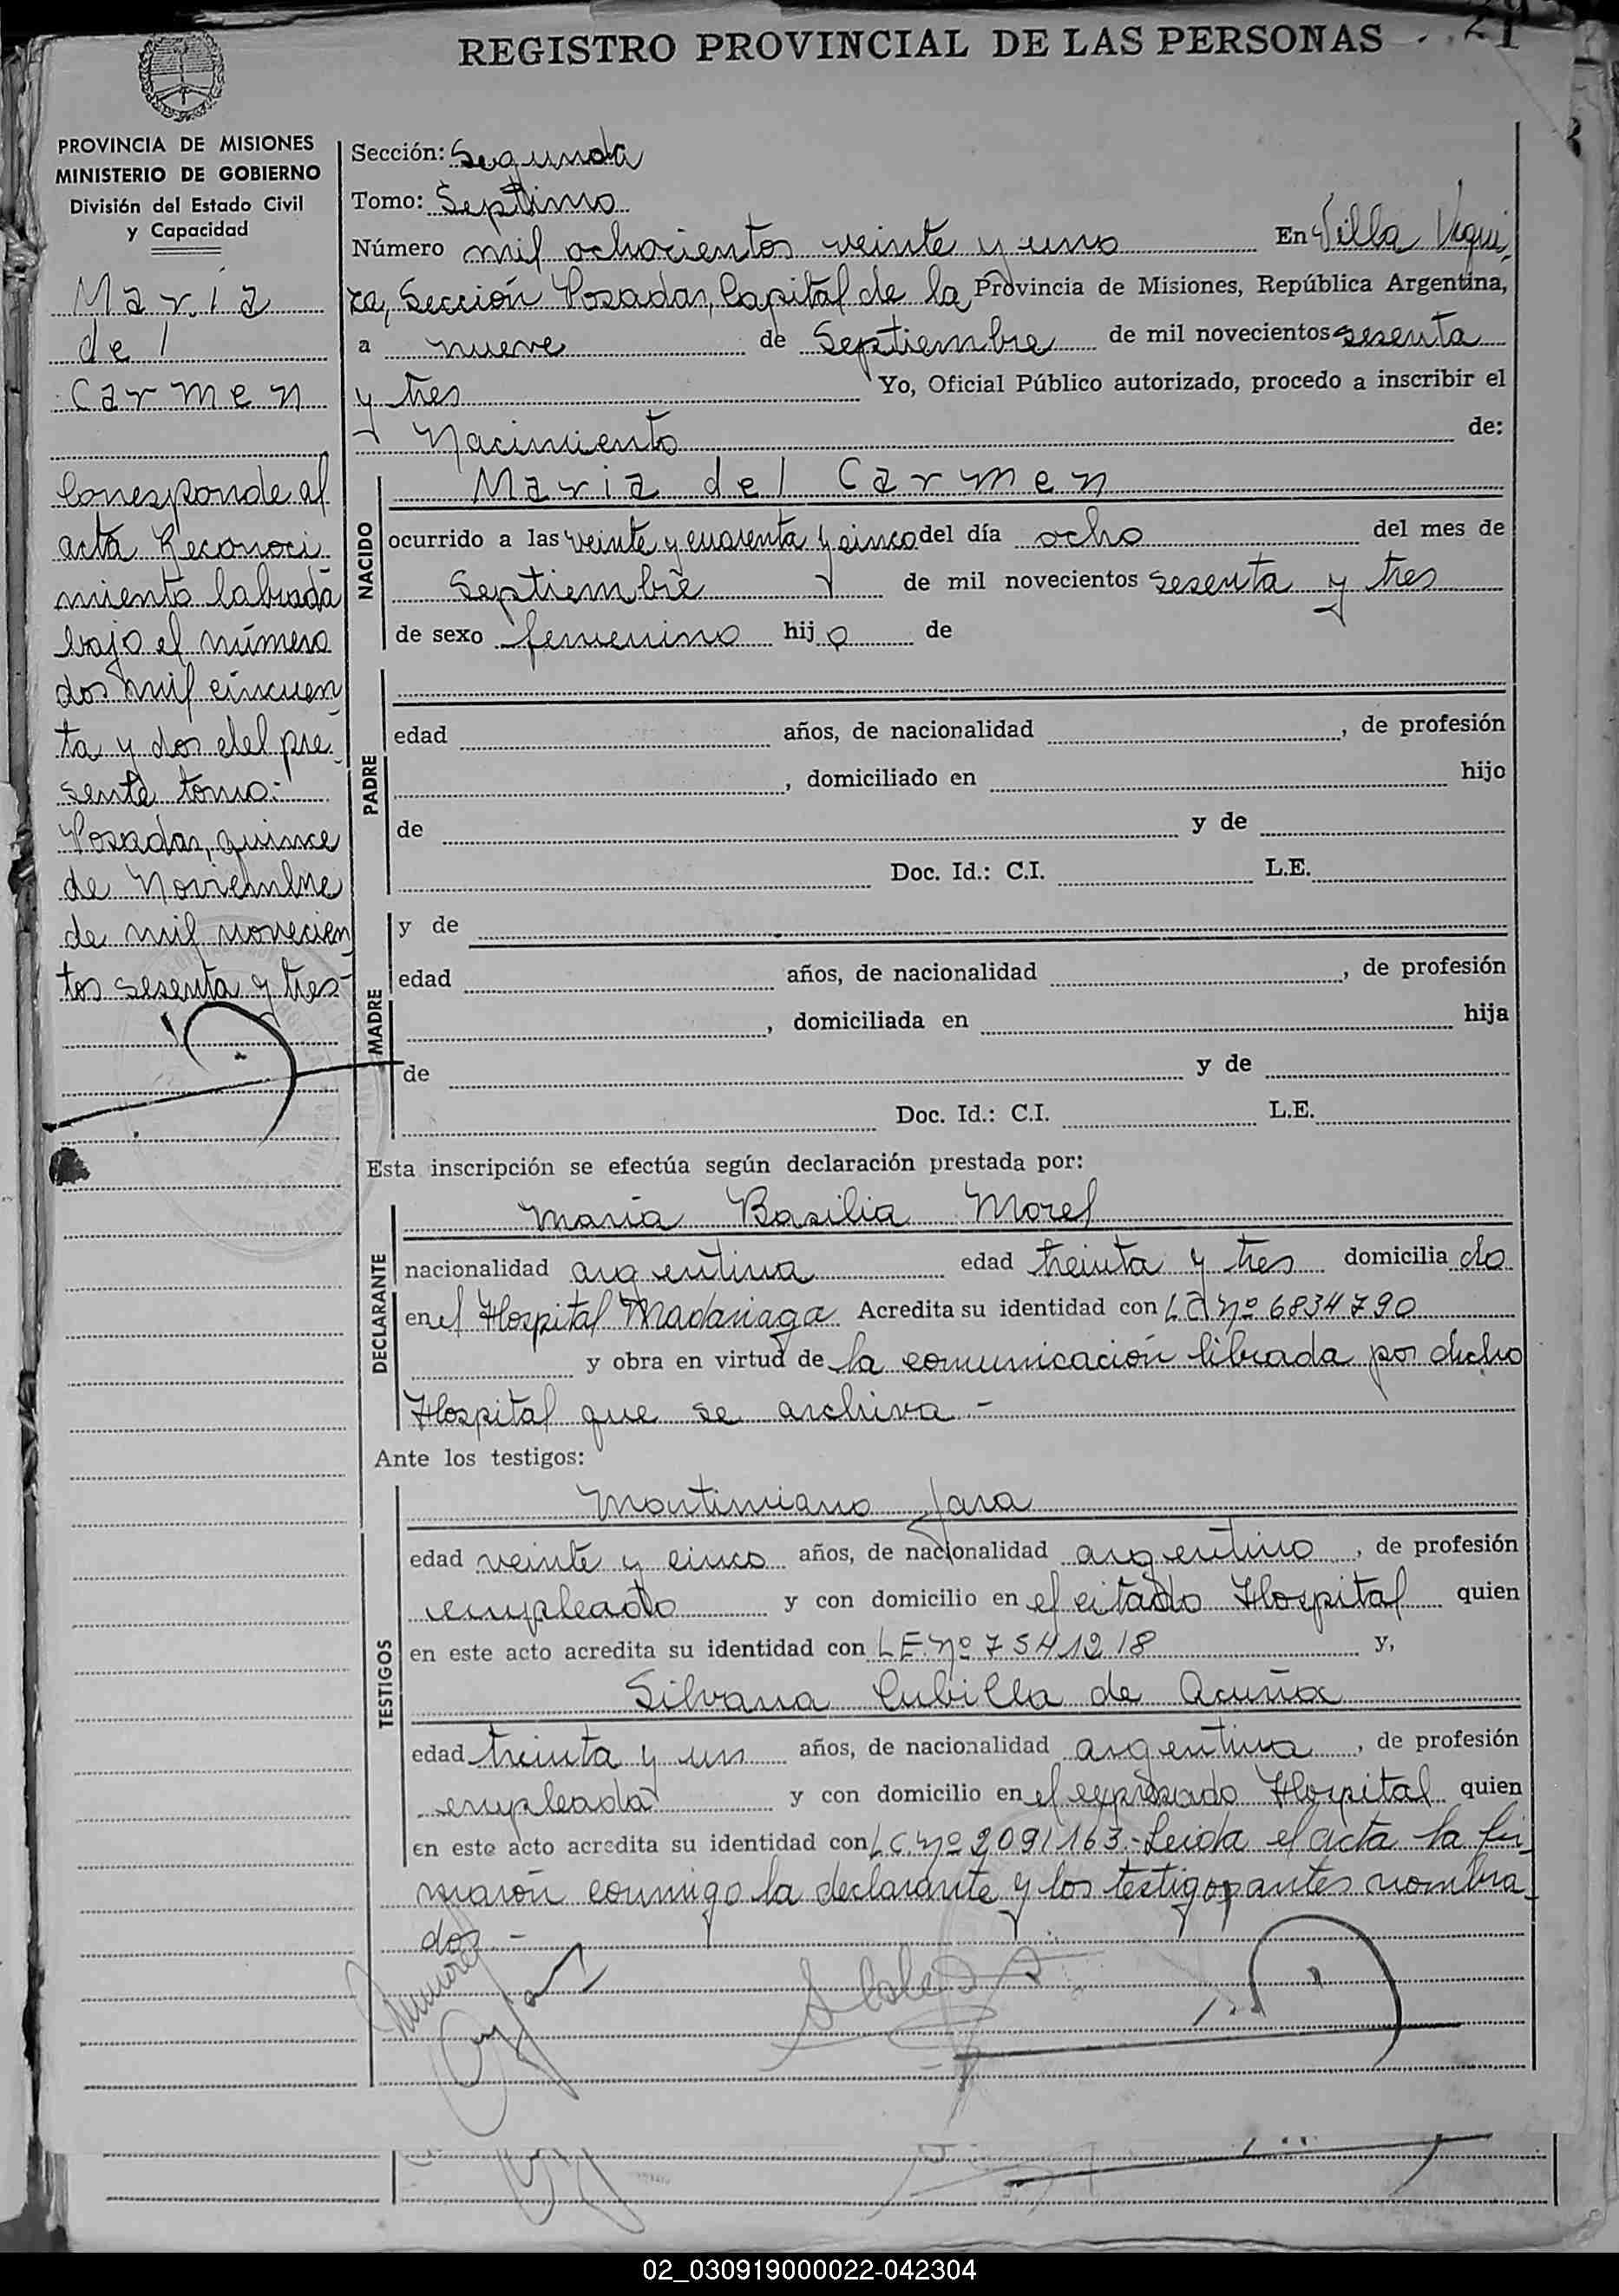 REGISTRO PROVINCIAL DE LAS PERSONAS
PROVINCIA DE MISIONES
MINISTERIO DE GOBIERNO
División del Estado Civil
y Capacidad
Maria
del
Carmen
Corresponde al
acta Reconoci
miento labrada
bajo el número
dos mil cincuen
ta y dos del pre
sente tomo.-
Posadas, quince
de Noviembre
de mil novecien
tos sesenta y tres-
Sección: Segunda
Tomo: Septimo
Número mil ochocientos veinte y uno En Villa Urqui
za, Sección Posadas, Capital de la Provincia de Misiones, República Argentina,
a nueve de Septiembre de mil novecientos sesenta
y tres Yo, Oficial Público autorizado, procedo a inscribir el
Nacimiento de:
NACIDO
Maria del Carmen
ocurrido a las veinte y cuarenta y cinco del día ocho del mes de
Septiembre de mil novecientos sesenta y tres
de sexo femenino hij a de
PADRE
edad años, de nacionalidad , de profesión
, domiciliado en hijo
de y de
Doc. Id.: C.I. L.E.
MADRE
y de
edad años, de nacionalidad , de profesión
, domiciliada en hija
de y de
Doc. Id.: C.I. L.E.
Esta inscripción se efectúa según declaración prestada por:
DECLARANTE
Maria Basilia Morel
nacionalidad argentina edad treinta y tres domicilia do
en el Hospital Madariaga Acredita su identidad con L C nº 6834790
y obra en virtud de la comunicación librada por dicho
Hospital que se archiva -
Ante los testigos:
TESTIGOS
Montimiano Jara
edad veinte y cinco años, de nacionalidad argentino , de profesión
empleado y con domicilio en el citado Hospital quien
en este acto acredita su identidad con L E. nº 7541218 y,
Silvana Cubilla de Acuña
edad treinta y un años, de nacionalidad argentina , de profesión
empleada y con domicilio en el expresado Hospital quien
en este acto acredita su identidad con L C nº 2091163.- Leida el acta la fir
maron conmigo la declarante y los testigos antes nombra
dos -
02_030919000022-042304